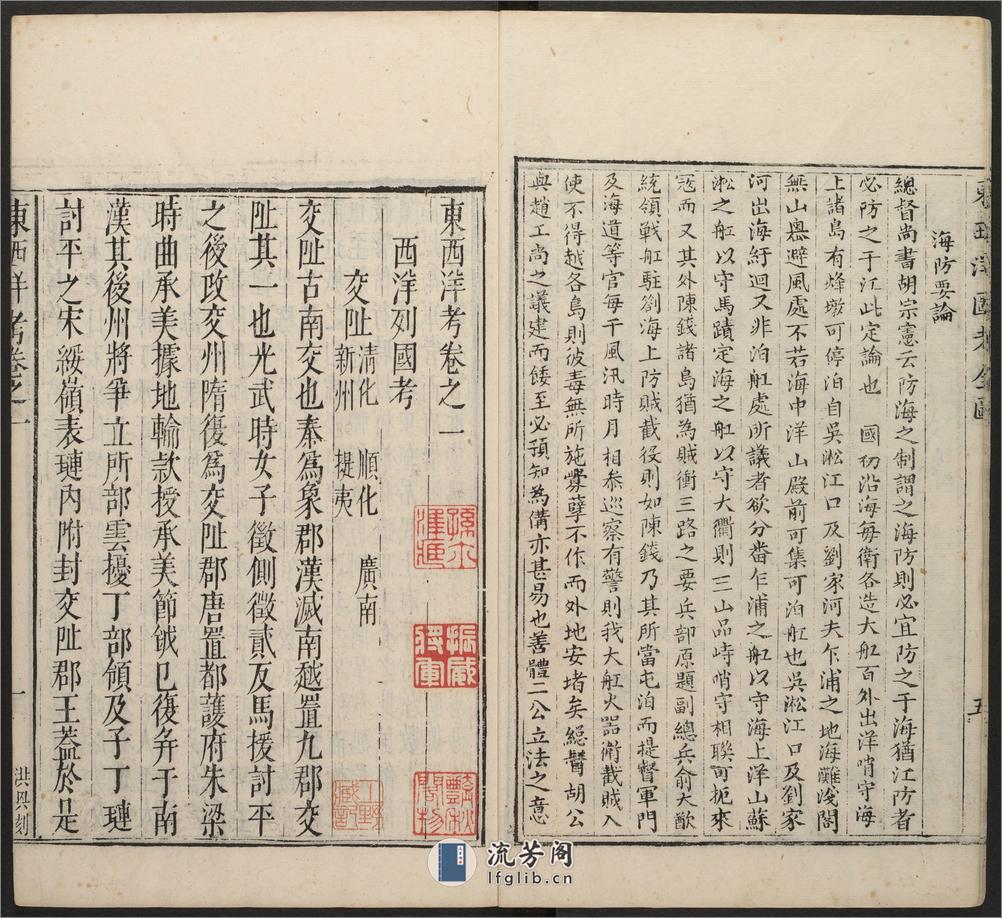 海防要論
總督尚書胡宗憲云防海之制謂之海防則必宜防之于海猶江防者
必防之于江此定論也　國初沿海每衛各造大舡百外出洋哨守海
上諸島有烽墩可停泊自吳淞江口及劉家河夫乍浦之地海灘淺閣
無山嶴避風處不若海中洋山殿前可集可泊舡也吳淞江口及劉家
河出海紆迴又非泊舡處所議者欲分畨乍浦之舡以守海上洋山蘇
淞之舡以守馬蹟定海之舡以守大衢則三山品峙哨守相聯可扼來
寇而又其外陳錢諸島猶為賊衝三路之要兵部原題副總兵俞大猷
統領戰舡駐劄海上防賊截役則如陳錢乃其所當屯泊而提督軍門
及海道等官每于風汛時月相叅巡察有警則我大舡火器衝截賊入
使不得越各島則彼毒無所施釁孽不作而外地安堵矣總督胡公
與趙工尚之議建而倭至必預知為備亦甚易也善體二公立法之意
五
東西洋考卷之一
西洋列國考
交阯 清化 順化 廣南
新州 提夷
交阯古南交也秦爲象郡漢滅南越置九郡交
阯其一也光武時女子徵側徵貳反馬援討平
之後改交州隋復爲交阯郡唐置都護府朱梁
時曲承美據地輸款授承美節鉞已復并于南
漢其後州將爭立所部雲擾丁部領及子丁璉
討平之宋綏嶺表璉內附封交阯郡王蓋於是
東西洋考卷之一
一
洪興刻
振威將軍
流芳阁
lfglib.cn